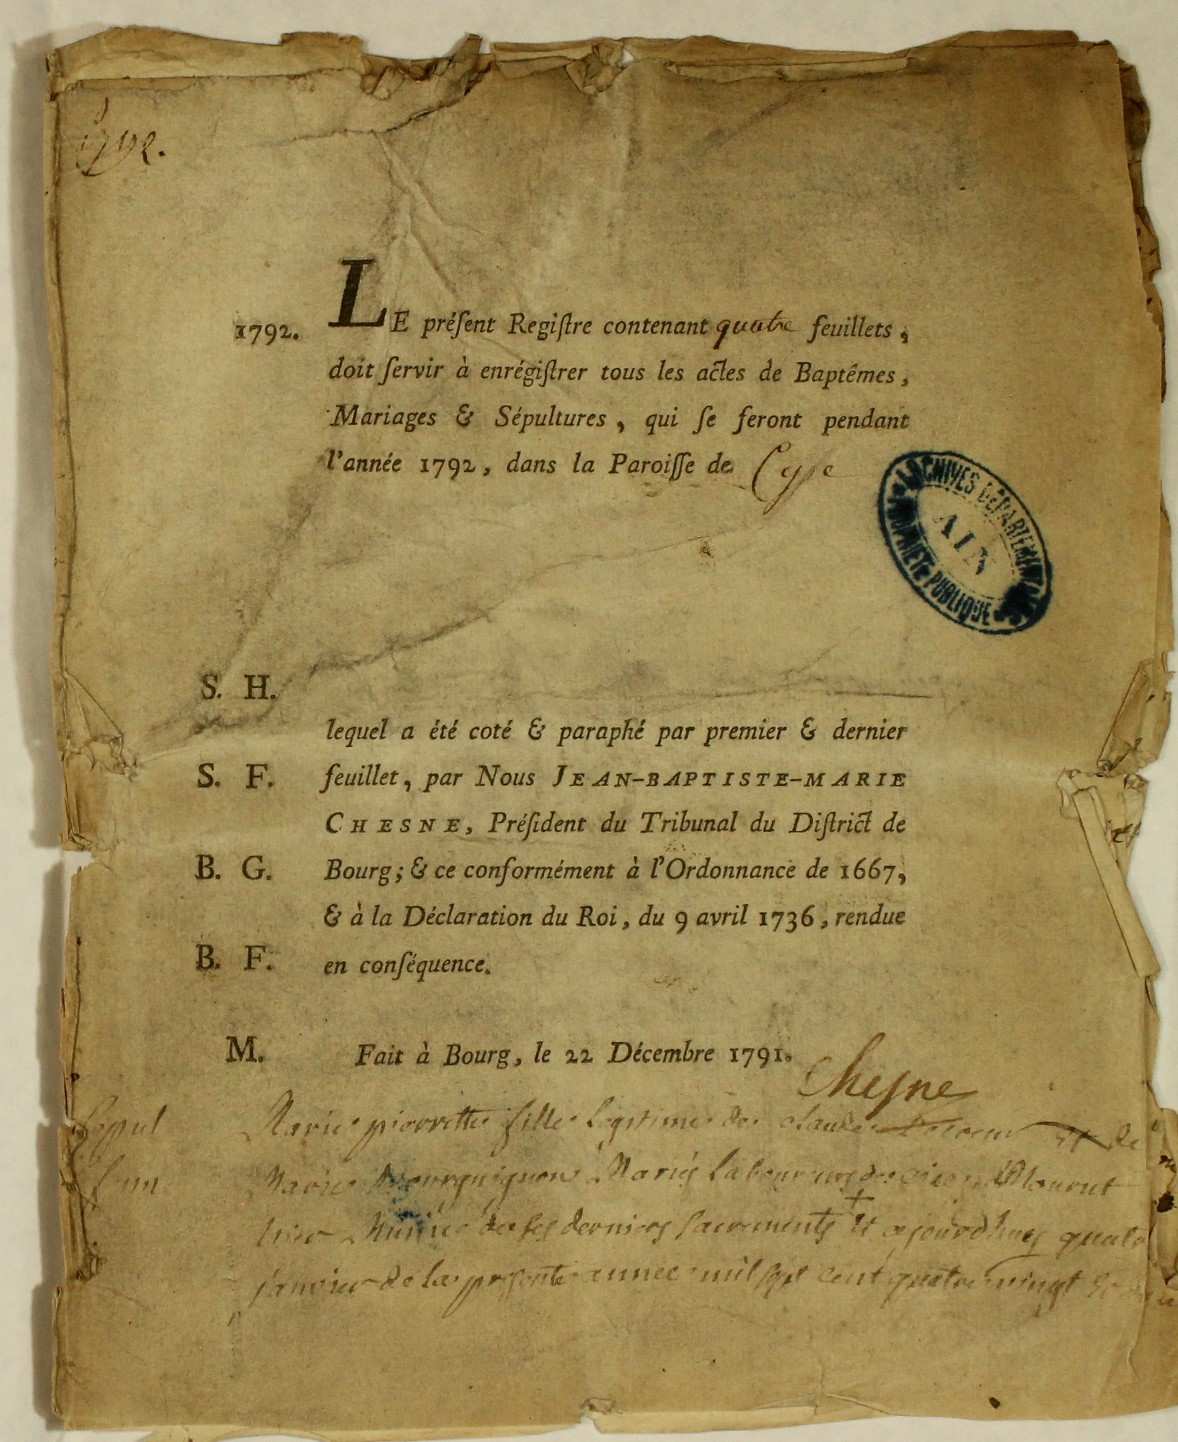 1792.
1792. LE préſent Regiſtre contenant quatre feuillets,
doit ſervir à enrégiſtrer tous les actes de Baptêmes,
Mariages & Sépultures, qui ſe feront pendant
l'année 1792, dans la Paroiſſe de
ARCHIVES DÉPARTEMENTALES
AIN
PROPRIÉTÉ PUBLIQUE
S. H.
lequel a été coté & paraphé par premier & dernier
S. F. feuillet, par Nous JEAN-BAPTISTE-MARIE
CHESNE, Préſident du Tribunal du Diſtrict de
B. G. Bourg; & ce conformément à l'Ordonnance de 1667,
& à la Déclaration du Roi, du 9 avril 1736, rendue
B. F. en conſéquence.
M. Fait à Bourg, le 22 Décembre 1791.
Chesne
Sepul Marie pierrette fille legitime de claude et de
Marie Bourguignon Mariés laboureurs mourut
hier Munie de ses derniers sacrements et aujourdhuy quatre
janvier de la presente année mil sept cent quatre vingt